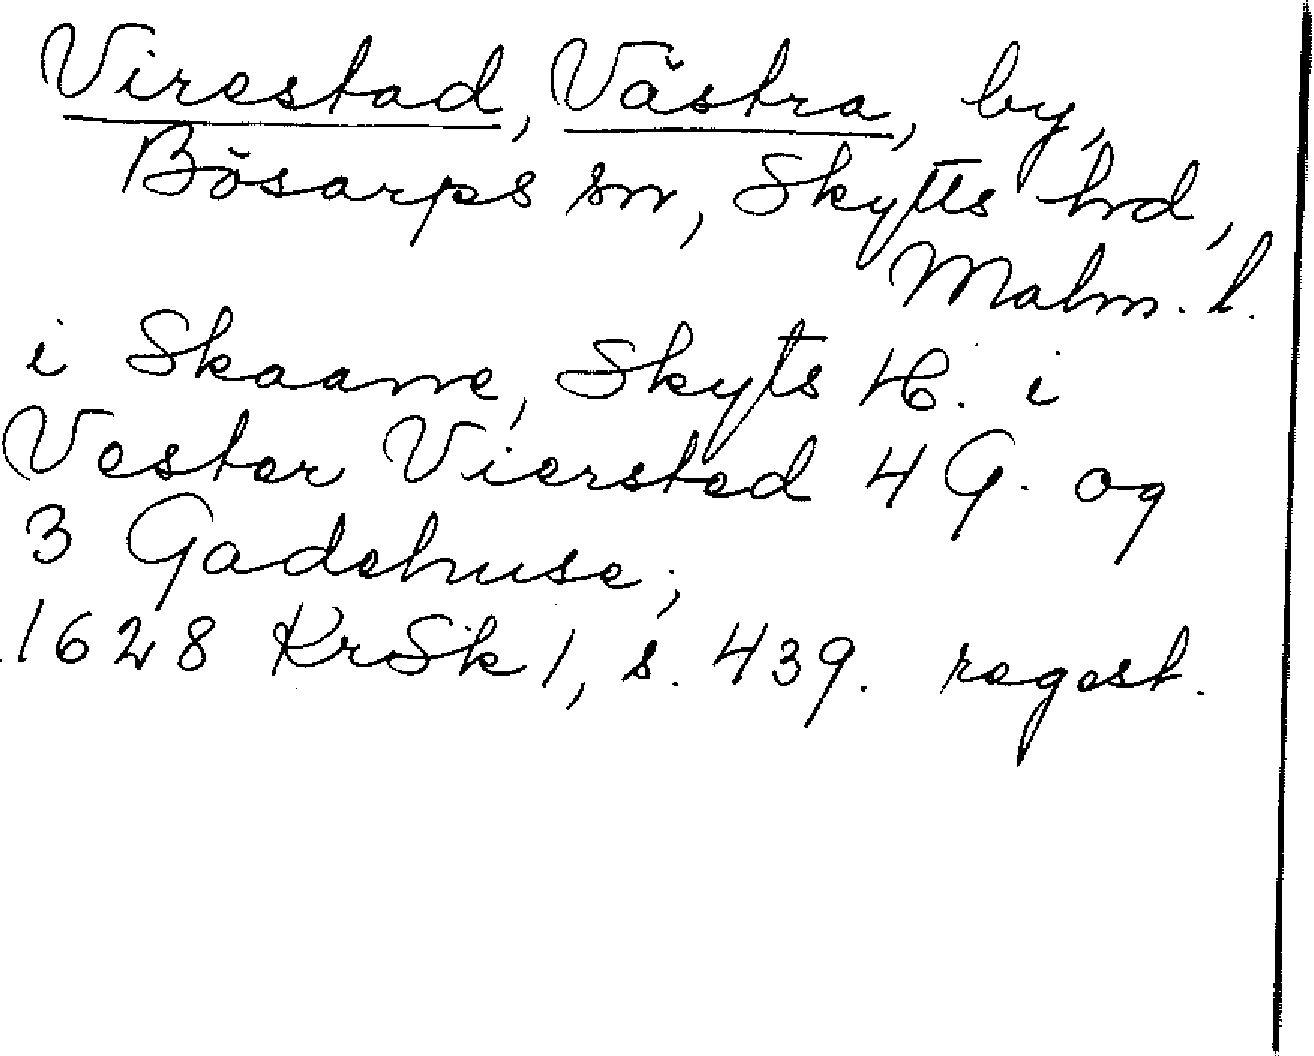 Virestad, Västra, by,
Bösarps sn, Skytts hrd,
Malm. l.
i Skaane, Skyts H. i
Vester Viersted 4 G. og
3 Gadehuse;
1628 KrSk 1, s. 439. regest.